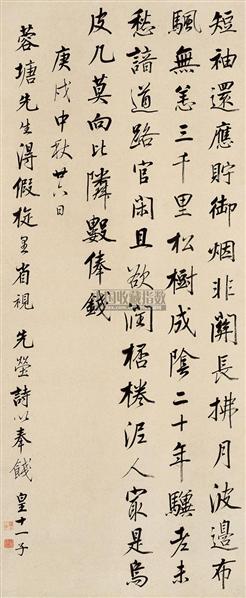 短袖還應貯御烟非關長拂月波邊布
颿無恙三千里松樹成陰二十年驥老未
愁諳道路官閑且欲潤桮棬泥人㝡是烏
皮几莫向比隣數俸錢
庚戌中秋廿六日
蓉塘先生得假旋里省視 先塋詩以奉餞 皇十一子
收藏指数